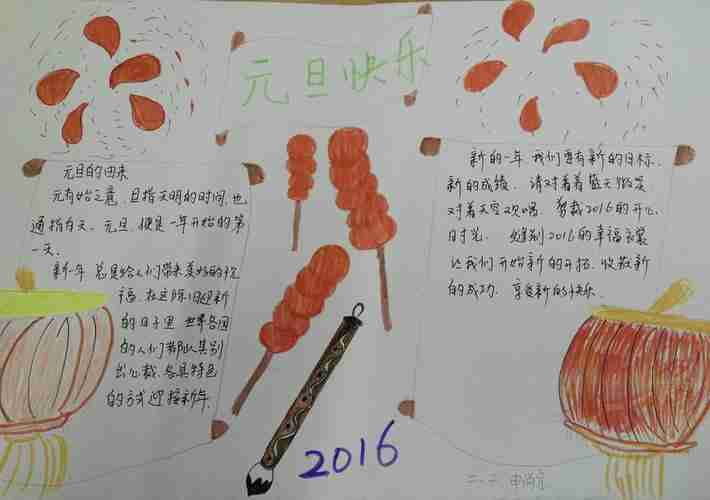 元旦快乐
元旦的由来
元有始之意，旦指天明的时间，也
通指白天。元旦，便是一年开始的第
一天。
新年总是给人们带来美好的祝
福，在这除旧迎新
的日子里 世界各国
的人们都以其别
出心裁、各具特色
的方式迎接新年。
新的一年 我们要有新的目标、
新的成绩。请对着着蓝天微笑
对着天空欢唱。剪裁2016的开心
时光。缝制2016的幸福衣裳
让我们开始新的开拓、收敛新
的成功、享受新的快乐
2016
二、二 申尚